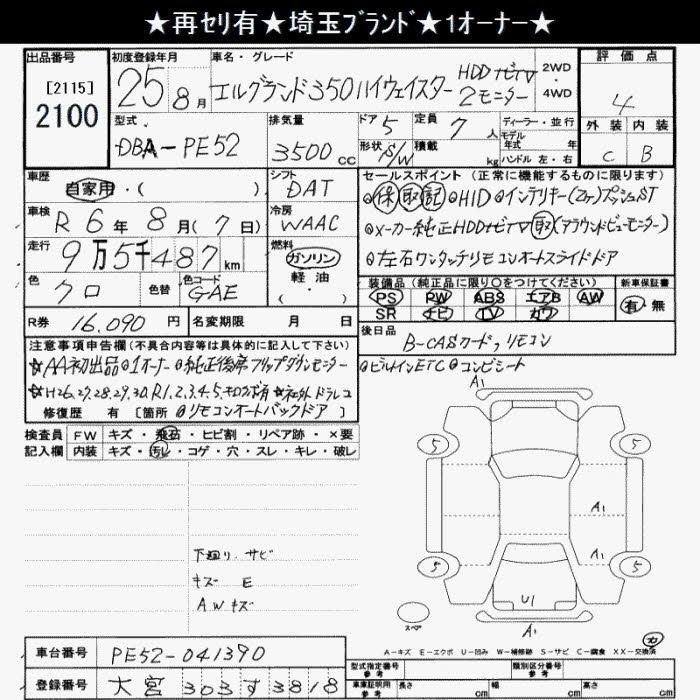 ★再セリ有★埼玉ﾌﾞﾗﾝﾄﾞ★1オーナー★
出品番号
[2115]
2100
初度登録年月
25年 8月
車名・グレード
エルグランド350ハイウェイスター HDDナビTV 2モニター
2WD・4WD
評価点
4
外装 内装
C B
型式
DBA-PE52
排気量
3500cc
ドア 5
形状 S/W
定員 7人
積載 kg
ディーラー・並行
モデル年式 年式
ハンドル 左・右
車歴
自家用・( )
シフト
DAT
車検
R 6年 8月(7日)
冷房
WAAC
走行
9万5千487km
燃料
ガソリン
軽油
( )
色
クロ
色替
色コード
GAE
セールスポイント(正常に機能するものに限ります)
◎保取記◎HID◎インテリキー(2ケ)プッシュST
◎メーカー純正HDDナビTV取(アラウンドビューモニター)
◎左右ワンタッチリモコンオートスライドドア
装備品(純正品に限り○をつけてください)
PS PW ABS エアB AW
SR ナビ TV カワ
新車保証書
有・無
R券 16,090円
名変期限 月 日
後日品
B-CASカード,リモコン
注意事項申告欄(不具合内容等は具体的に記入して下さい)
☆AA初出品◎1オーナー◎純正後席フリップダウンモニター
◎ビルトインETC◎コンビシート
☆H26,27,28,29,30,R1,2,3,4,5,キロク有☆社外ドラレコ
修復歴 有[箇所 ◎リモコンオートバックドア]
検査員記入欄
FW キズ・飛石・ヒビ割・リペア跡・×要
内装 キズ・汚レ・コゲ・穴・スレ・キレ・破レ
下廻り,サビ
キズ E
AWキズ
A1
5
5
A1
A1
5
5
U1
A1
スペア
A-キズ E-エクボ U-凹み W-補修跡 S-サビ C-腐食 XX-交換済
車台番号 PE52-041390
登録番号 大宮 303す3818
型式指定番号 参考
類別区分番号 参考
車庫証明用 参考
長さ cm 幅 cm 高さ cm